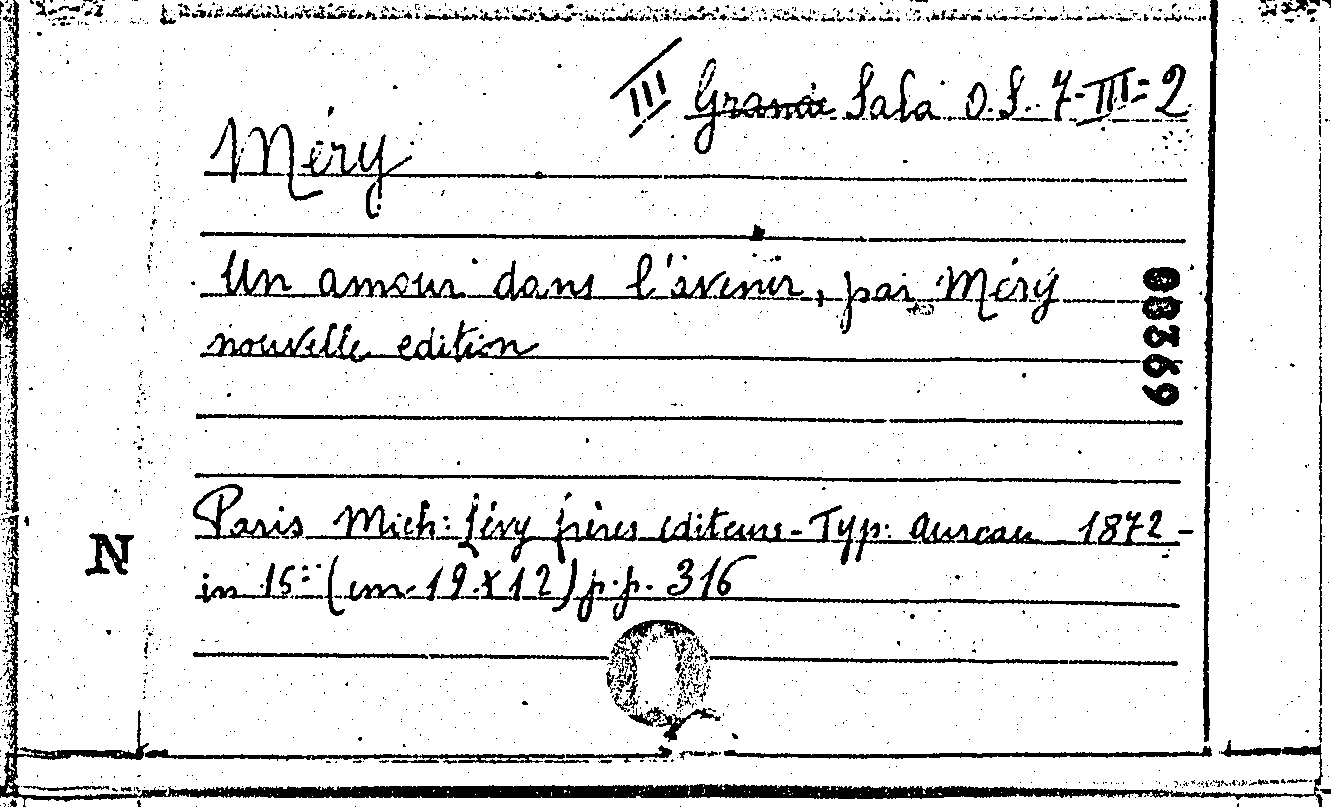 III Grande Sala O.S. 7-III=2
Méry
Un amour dans l'avenir, par Méry
nouvelle edition
08369
Paris Mich: Lévy frères editeurs - Typ: Aureau 1872 -
N
in 15:° (cm. 19 x 12) p.p. 316